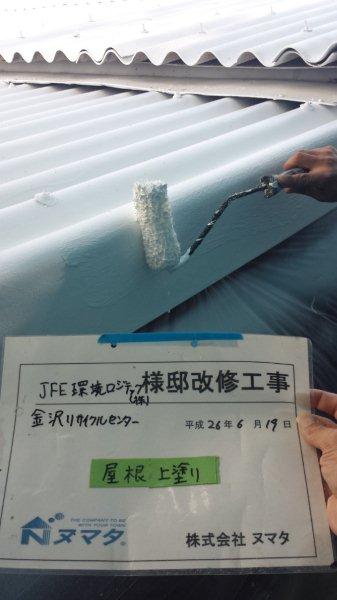 JFE環境ロジテック(株)様邸改修工事
金沢リサイクルセンター
平成26年6月19日
屋根上塗り
THE COMPANY TO BE
WITH YOUR TOWN
Nヌマタ
株式会社 ヌマタ